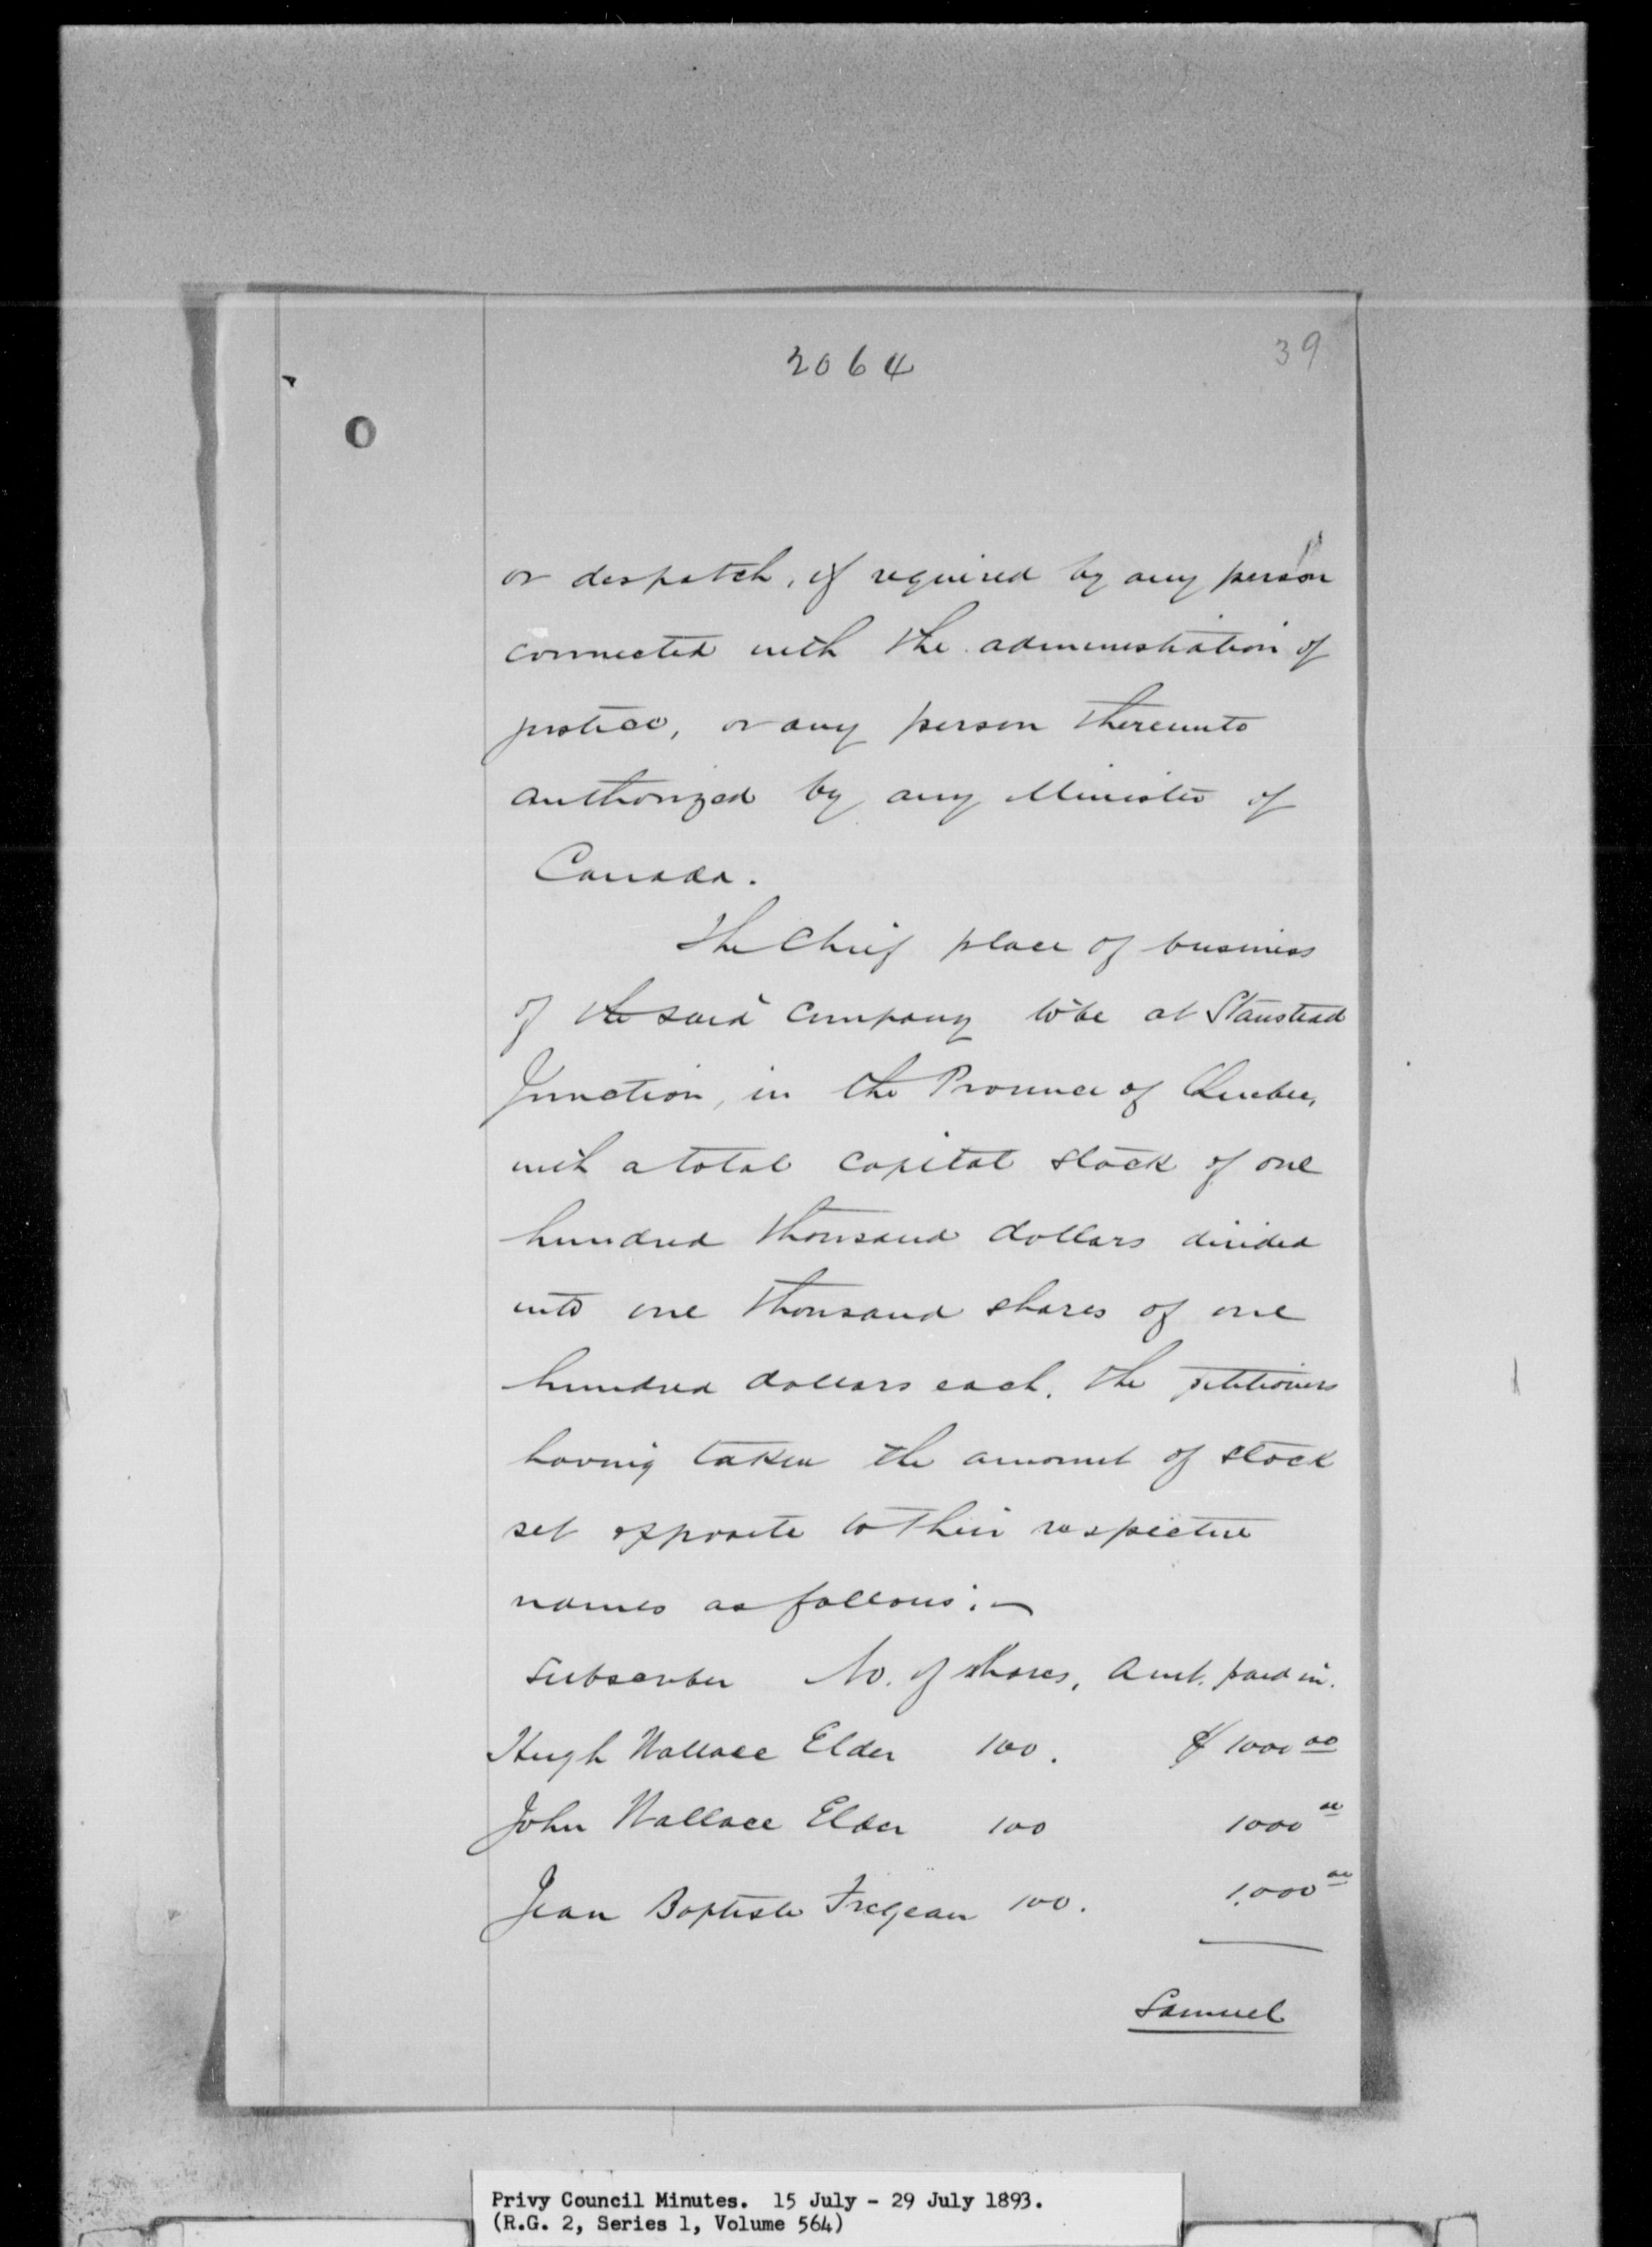 2064
39
or despatch, if required by any person
connected with the administration of
justice, or any person thereunto
authorized by any Minister of
Canada.
The Chief place of business
of the said Company to be at Stanstead
Junction, in the Province of Quebec,
with a total capital stock of one
hundred thousand dollars divided
into one thousand shares of one
hundred dollars each, the petitioners
having taken the amount of stock
set opposite to their respective
names as follows:—
Subscriber No. of shares, Amt. paid in.
Hugh Wallace Elder 100. $1000 00
John Wallace Elder 100 1000 00
Jean Baptiste Fregeau 100. 1,000 00
Samuel
Privy Council Minutes. 15 July - 29 July 1893.
(R.G. 2, Series 1, Volume 564)